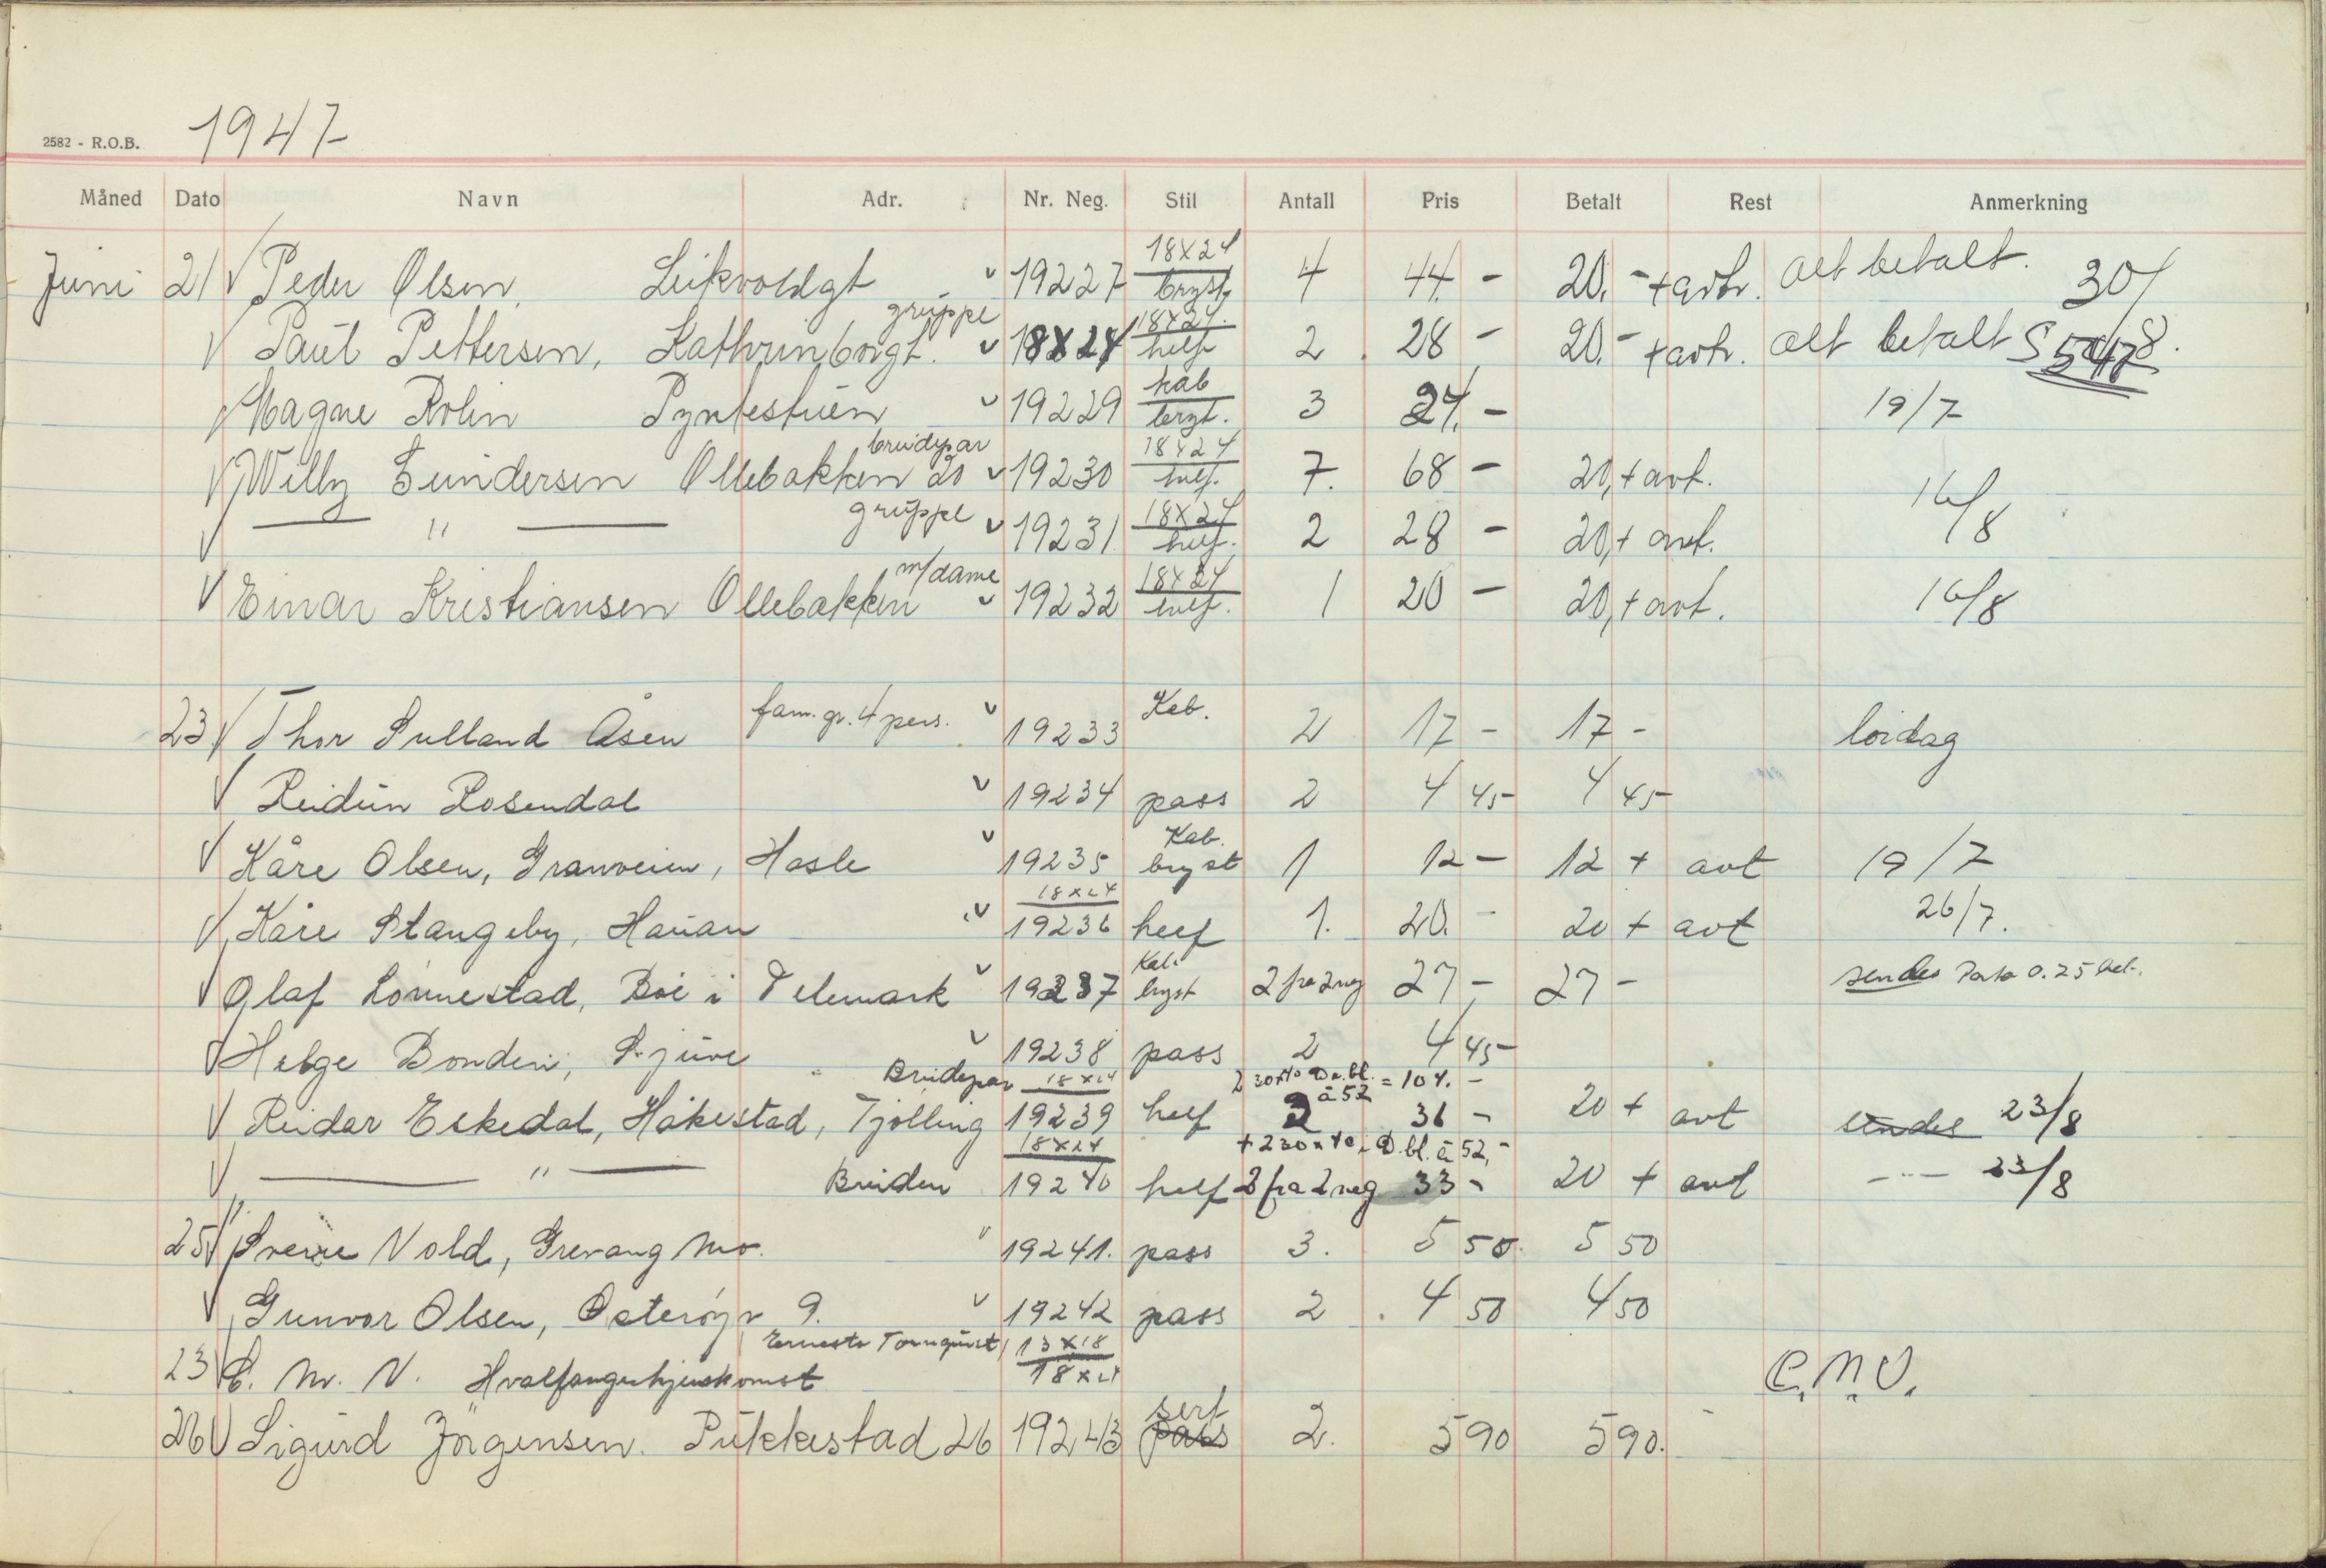 1947
2582 - R.O.B.
Måned Dato Navn Adr. Nr. Neg. Stil Antall Pris Betalt Rest Anmerkning
Juni 21 Peder Olsen, Leikvoldgt 19227 18x24 bryst 4 44.- 20.- + avtr. alt betalt. 30/
Paul Pettersen, Kathrinborgt. gruppe 18x24 18x24. helf 2 28- 20.- + avtr. alt betalt 8.
Magne Rolin 19229 kab bryst. 3 24.- 19/7
Willy Gundersen Ollebakken 20 brudepar 19230 18x24 helf. 7. 68- 20,+ avt. 16/8
— " — gruppe 19231 18x24 helf. 2 28- 20,+ avt.
Einar Kristiansen Ollebakken m/dame 19232 18x24 helf. 1 20- 20,+ avt. 16/8
23 Thor Sulland Åsen fam. gr. 4 pers. 19233 Keb. 2 17- 17- lördag
Reidun Rosendal 19234 pass 2 4 45 4 45
Kåre Olsen, Granveien, Hasle 19235 Kab. bryst 1 12- 12 + avt 19/7
Kåre Stangeby, Hauan 19236 18x24 helf 1. 20.- 20 + avt 26/7.
Olaf Lönnestad, Böe i Telemark 19237 Kab. bryst 2 fra 2 neg 27,- 27- sendes Porto 0.25 bet.
Helge Bonden, 19238 pass 2 4 45
2 30x40 Br. bl. à 52 = 104.-
Reidar Eskedal, Håkestad, Tjölling Brudepar 19239 18x24 helf 3 36- 20 + avt sendes 23/8
+ 2 30x40 D. bl. à 52,-
— " — Bruden 19240 18x24 helf 2 fra 2 neg 33- 20 + avt - " - 23/8
25 Sverre Vold, Grevang Mo. 19241. pass 3. 5 50. 5 50
Gunvor Olsen, Österöyv 9. 19242 pass 2 4 50 4 50
23 C. M. V. Hvalfangerhjemkomst Ernesto Tornquist 13x18 18x24 C.M.V.
26 Sigurd Jörgensen. Pukkestad 26 19243 sert pass 2. 5 90 5 90.